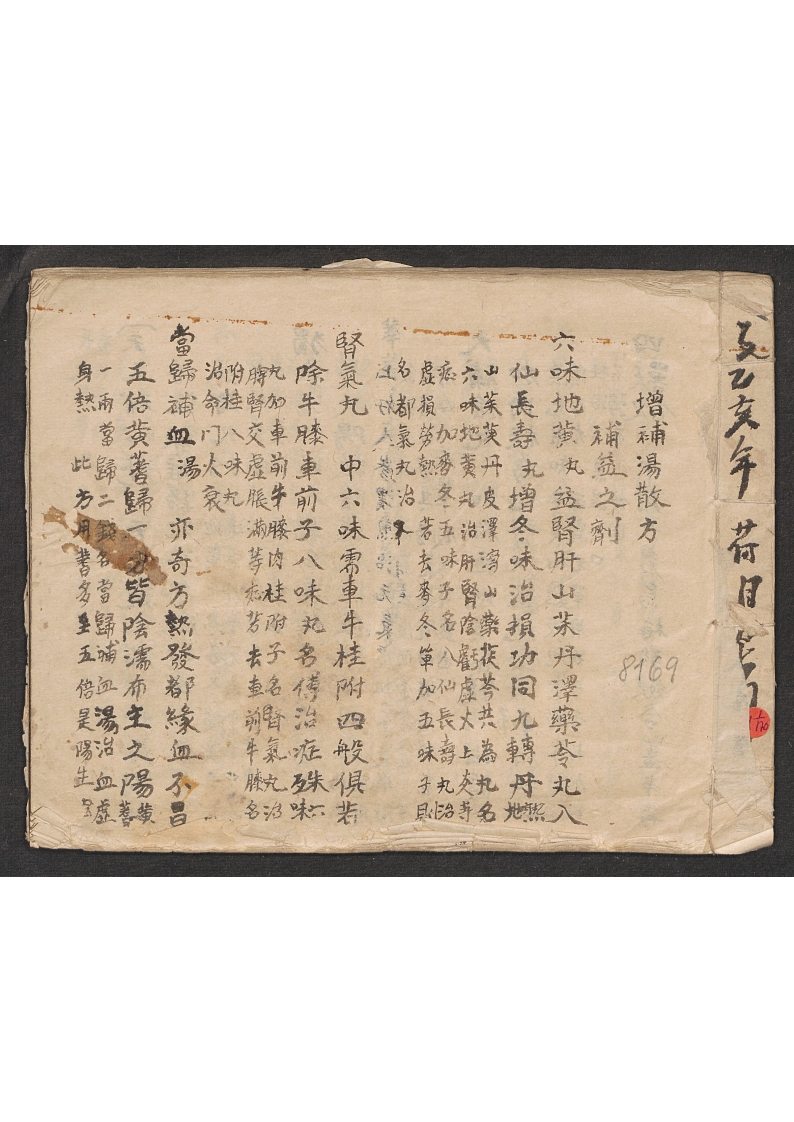 乙亥年荷月
增補湯散方
補益之劑
8169
六味地黃丸益腎肝山茱丹澤藥苓丸八
仙長壽丸增冬味治損功同九轉丹熟地
山茱萸丹皮澤瀉山藥茯苓共為丸名
六味地黃丸治肝腎陰虧虛火上炎等
症加麥冬五味子名八仙長壽丸治
虛損勞熱若去麥冬單加五味子則
名都氣丸治
腎氣丸 中六味需車牛桂附四般俱若
除牛膝車前子八味丸名傳治症殊六味
丸加車前牛膝肉桂附子名腎氣丸治
脾腎交虛脹滿等症若去車前牛膝名
附桂八味丸
治命門火衰
當歸補血湯 亦奇方熱發都緣血不昌
五倍黃蓍歸一分皆陰濡布主之陽黃蓍
一兩當歸二錢名當歸補血湯治血虛
身熱 此方用蓍多至五倍是陽生